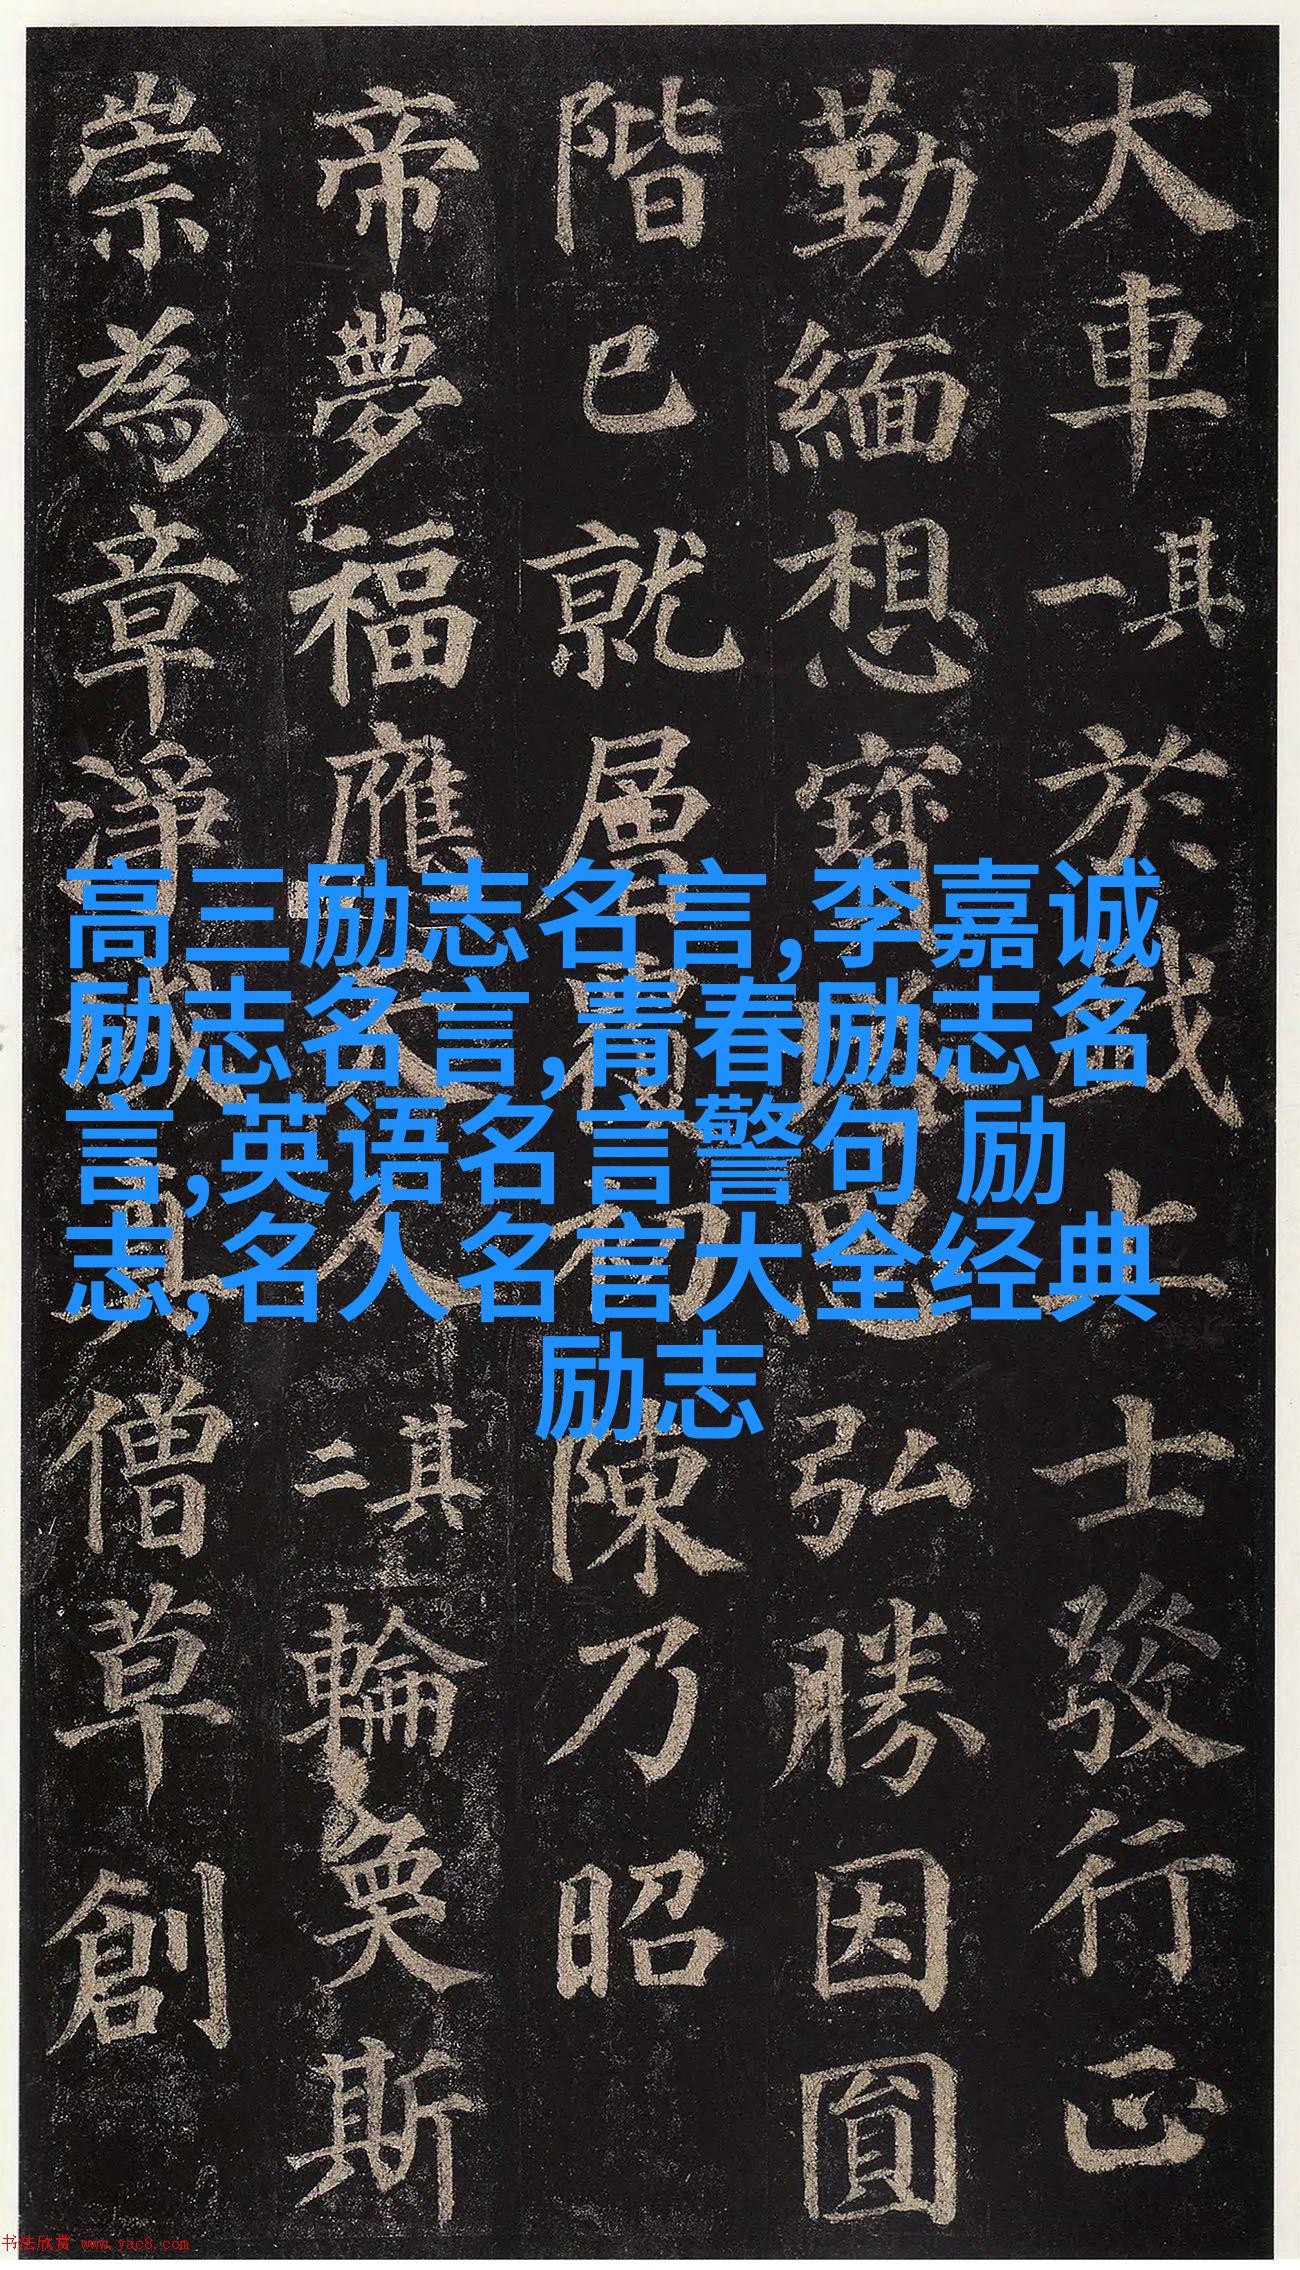 大車其一於戲上士發行正
勤緬想寶塔思弘勝因圓
階已就層覆初陳乃昭
帝夢福應天人其二輪奐斯
崇為章淨域真僧草創
高三励志名言,李嘉诚
励志名言,青春励志名
言,英语名言警句 励
志,名人名言大全经典
励志
书法欣赏 www.yac8.com